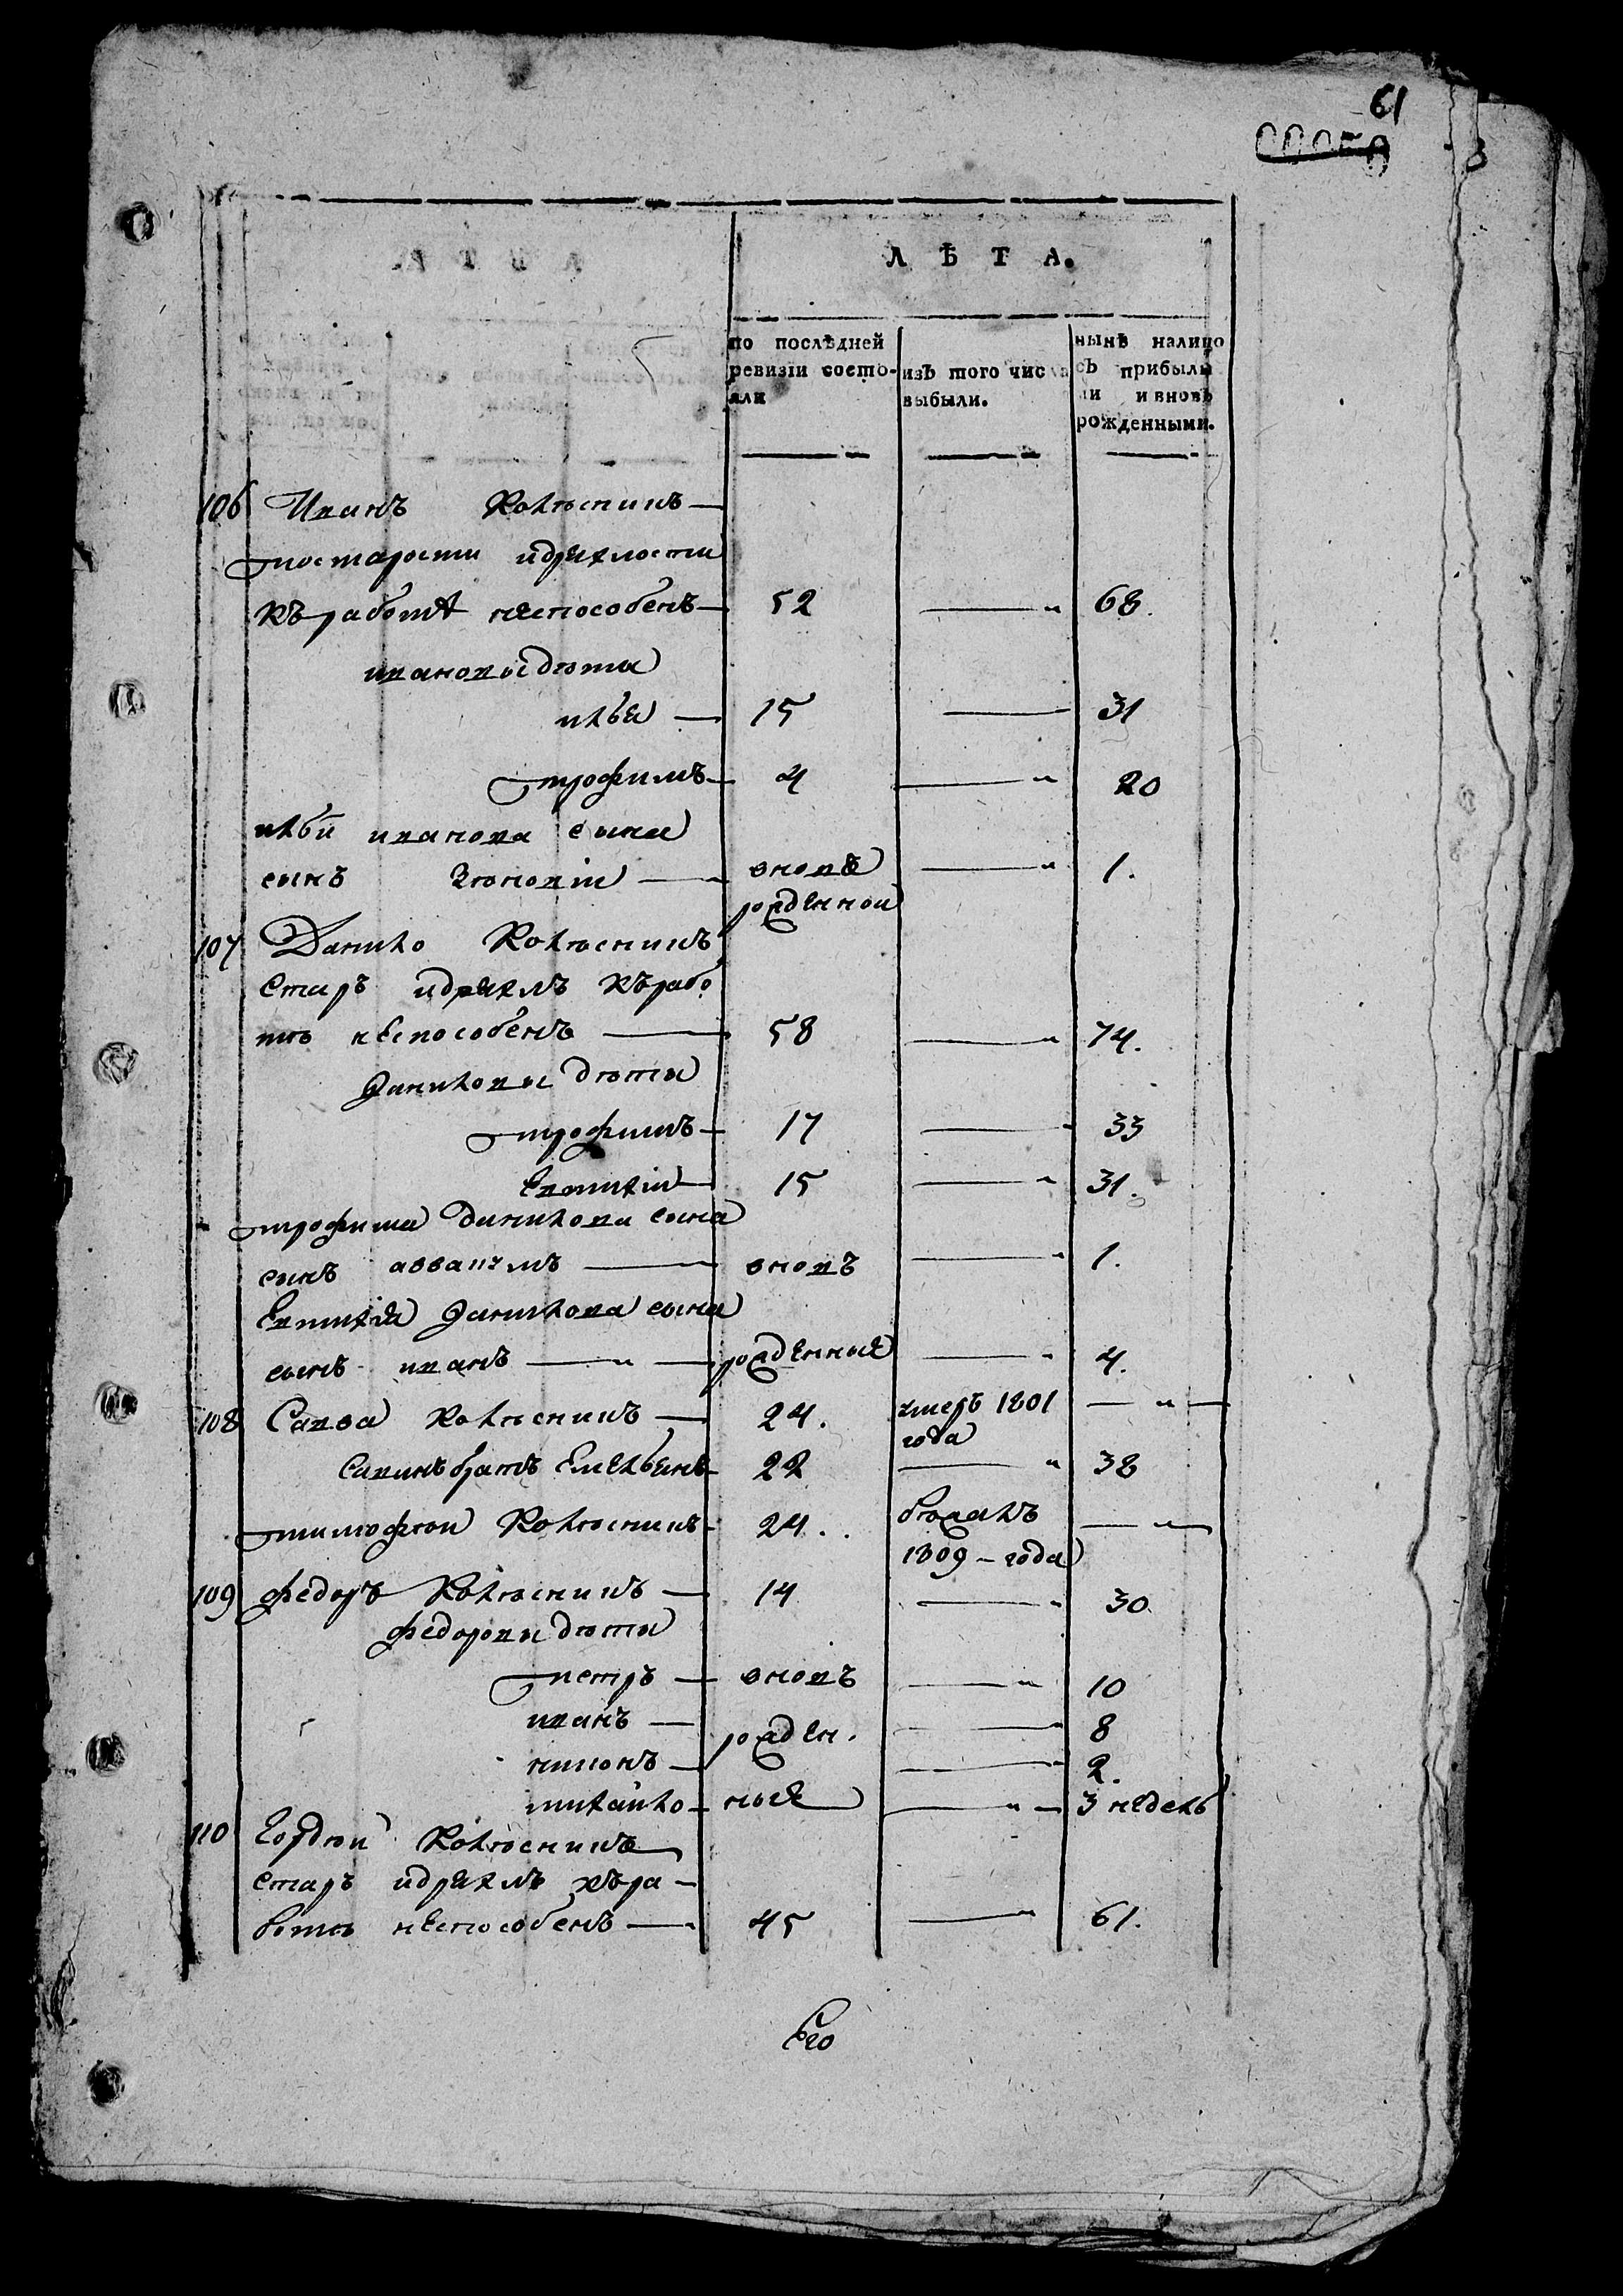 61
ЛѢТА.
по послѣдней
ревизіи состо-
яли
изъ того числа
выбыли.
нынѣ налицо
съ прибылы
ми и вновь
рожденными.
106 Иванъ Колѣснинъ —
постарости идряхлости
къработѣ неспособенъ — 52 — " 68.
ивановы дѣти
илья — 15 — 31
трофимъ — 4 — " 20
ильи иванова сына
сынъ — вновѣ — " 1.
рожденной
107 Данило Колѣснинъ
старъ идряхлъ кърабо
тѣ неспособенъ — 58 — " 74.
Даниловы дѣти
трофимъ — 17 — 33
15 — " 31.
трофима данилова сына
сынъ аввакумъ — вновъ — " 1.
данилова сына
сынъ иванъ — " — рожденные — " 4.
108 Савва Колѣснинъ — 24. умеръ 1801 — " —
года
Савинъ братъ Емельянъ — 22 — " 38
тимофѣй Колѣснинъ — 24. бѣжалъ — " —
1809 – года
109 федоръ Колѣснинъ — 14 — " 30
федоровы дѣти
петръ — вновъ — " 10
иванъ — рожден. — " 8
— 2.
михайло — ные — " — 3 недель
110 Гордѣй Колѣснинъ
старъ идряхлъ къра –
ботѣ неспособенъ — 45 — " 61.
Его